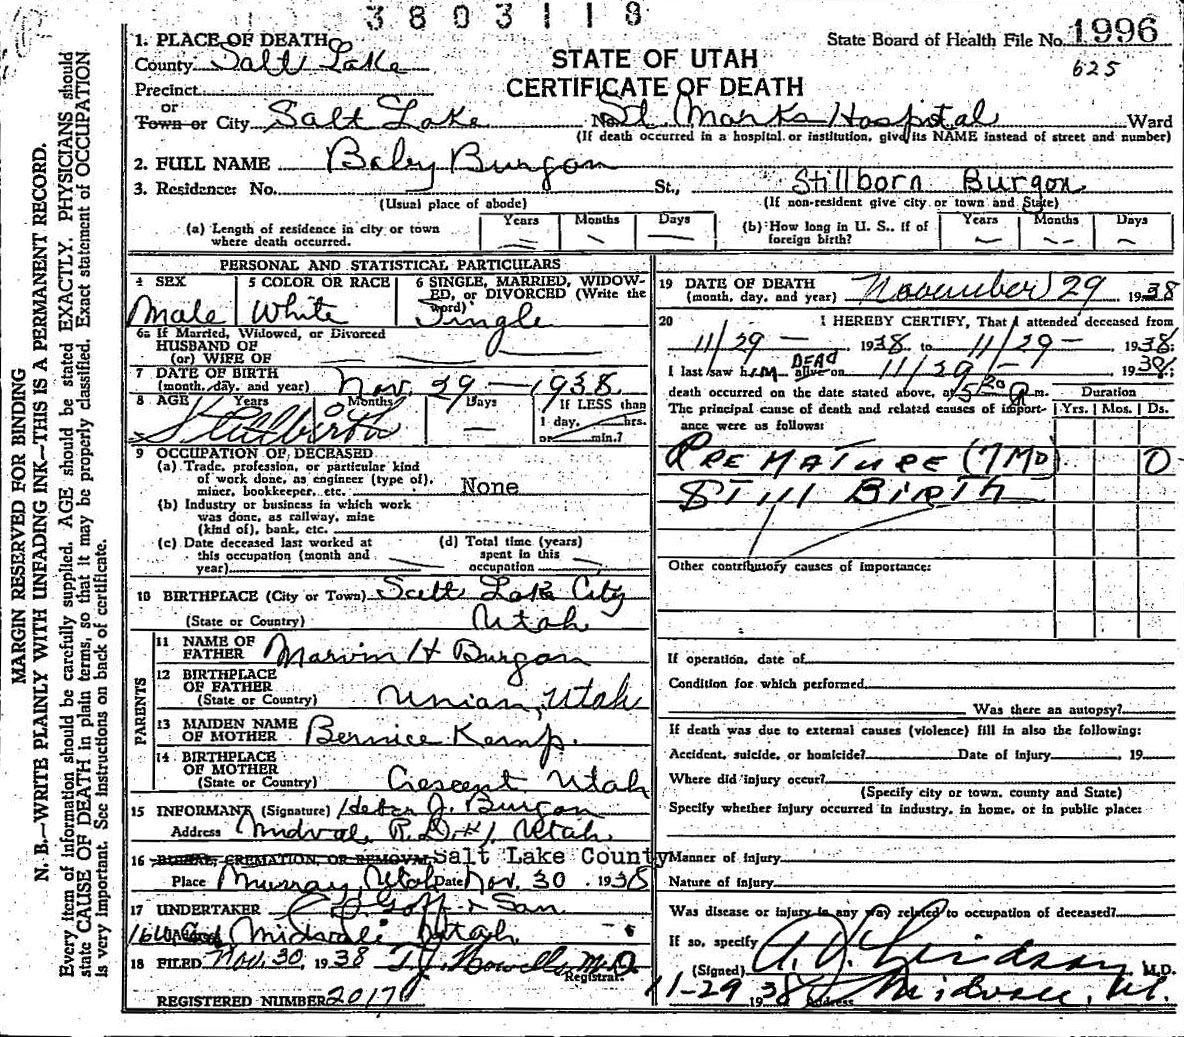 3803118
1996
State Board of Health File No.
625
STATE OF UTAH
CERTIFICATE OF DEATH
1. PLACE OF DEATH
County Salt Lake
Precinct
or
Town or City Salt Lake No. St. Marks Hospital Ward
(If death occurred in a hospital or institution, give its NAME instead of street and number)
2. FULL NAME Baby Burgon
3. Residence: No. St., Stillborn Burgon
(Usual place of abode) (If non-resident give city or town and State)
(a) Length of residence in city or town where death occurred. Years Months Days
(b) How long in U. S., if of foreign birth? Years Months Days
PERSONAL AND STATISTICAL PARTICULARS
4 SEX Male
5 COLOR OR RACE White
6 SINGLE, MARRIED, WIDOWED, or DIVORCED (Write the word) Single
6a If Married, Widowed, or Divorced
HUSBAND OF
(or) WIFE OF
7 DATE OF BIRTH
(month, day, and year) Nov. 29 - 1938
8 AGE Years Months Days If LESS than
1 day, hrs.
or min.?
Stillborn
9 OCCUPATION OF DECEASED
(a) Trade, profession, or particular kind
of work done, as engineer (type of),
miner, bookkeeper, etc. None
(b) Industry or business in which work
was done, as railway, mine
(kind of), bank, etc.
(c) Date deceased last worked at
this occupation (month and
year)
(d) Total time (years)
spent in this
occupation
10 BIRTHPLACE (City or Town) Salt Lake City
(State or Country) Utah
PARENTS
11 NAME OF
FATHER Marvin H Burgon
12 BIRTHPLACE
OF FATHER
(State or Country) Union, Utah
13 MAIDEN NAME
OF MOTHER Bernice Kemp.
14 BIRTHPLACE
OF MOTHER
(State or Country) Crescent Utah
15 INFORMANT (Signature) Heber J. Burgon
Address Midvale R.D. #1, Utah.
16 BURIAL, CREMATION, OR REMOVAL Salt Lake County
Place Murray, Utah Date Nov. 30 1938
17 UNDERTAKER Goff & Son
Midvale Utah.
18 FILED Nov. 30, 1938 T. J. Howells M.D.
Registrar.
REGISTERED NUMBER 2017
19 DATE OF DEATH
(month, day, and year) November 29 1938
20 I HEREBY CERTIFY, That I attended deceased from
11/29 - 1938 to 11/29 - 1938;
I last saw him alive on DEAD 11/29 - 1938;
death occurred on the date stated above, at 5 20 P m.
The principal cause of death and related causes of importance were as follows:
Duration
Yrs. Mos. Ds.
PREMATURE (7 MO) 0
STILL BIRTH
Other contributory causes of importance:
If operation, date of
Condition for which performed
Was there an autopsy?
If death was due to external causes (violence) fill in also the following:
Accident, suicide, or homicide? Date of Injury 19
Where did injury occur?
(Specify city or town, county and State)
Specify whether injury occurred in industry, in home, or in public place:
Manner of Injury
Nature of Injury
Was disease or injury in any way related to occupation of deceased?
If so, specify
(Signed) A. J. Lindsay M.D.
11-29 1938 Address Midvale, Ut.
MARGIN RESERVED FOR BINDING
N. B.—WRITE PLAINLY WITH UNFADING INK—THIS IS A PERMANENT RECORD.
Every item of information should be carefully supplied. AGE should be stated EXACTLY. PHYSICIANS should
state CAUSE OF DEATH in plain terms, so that it may be properly classified. Exact statement of OCCUPATION
is very important. See instructions on back of certificate.